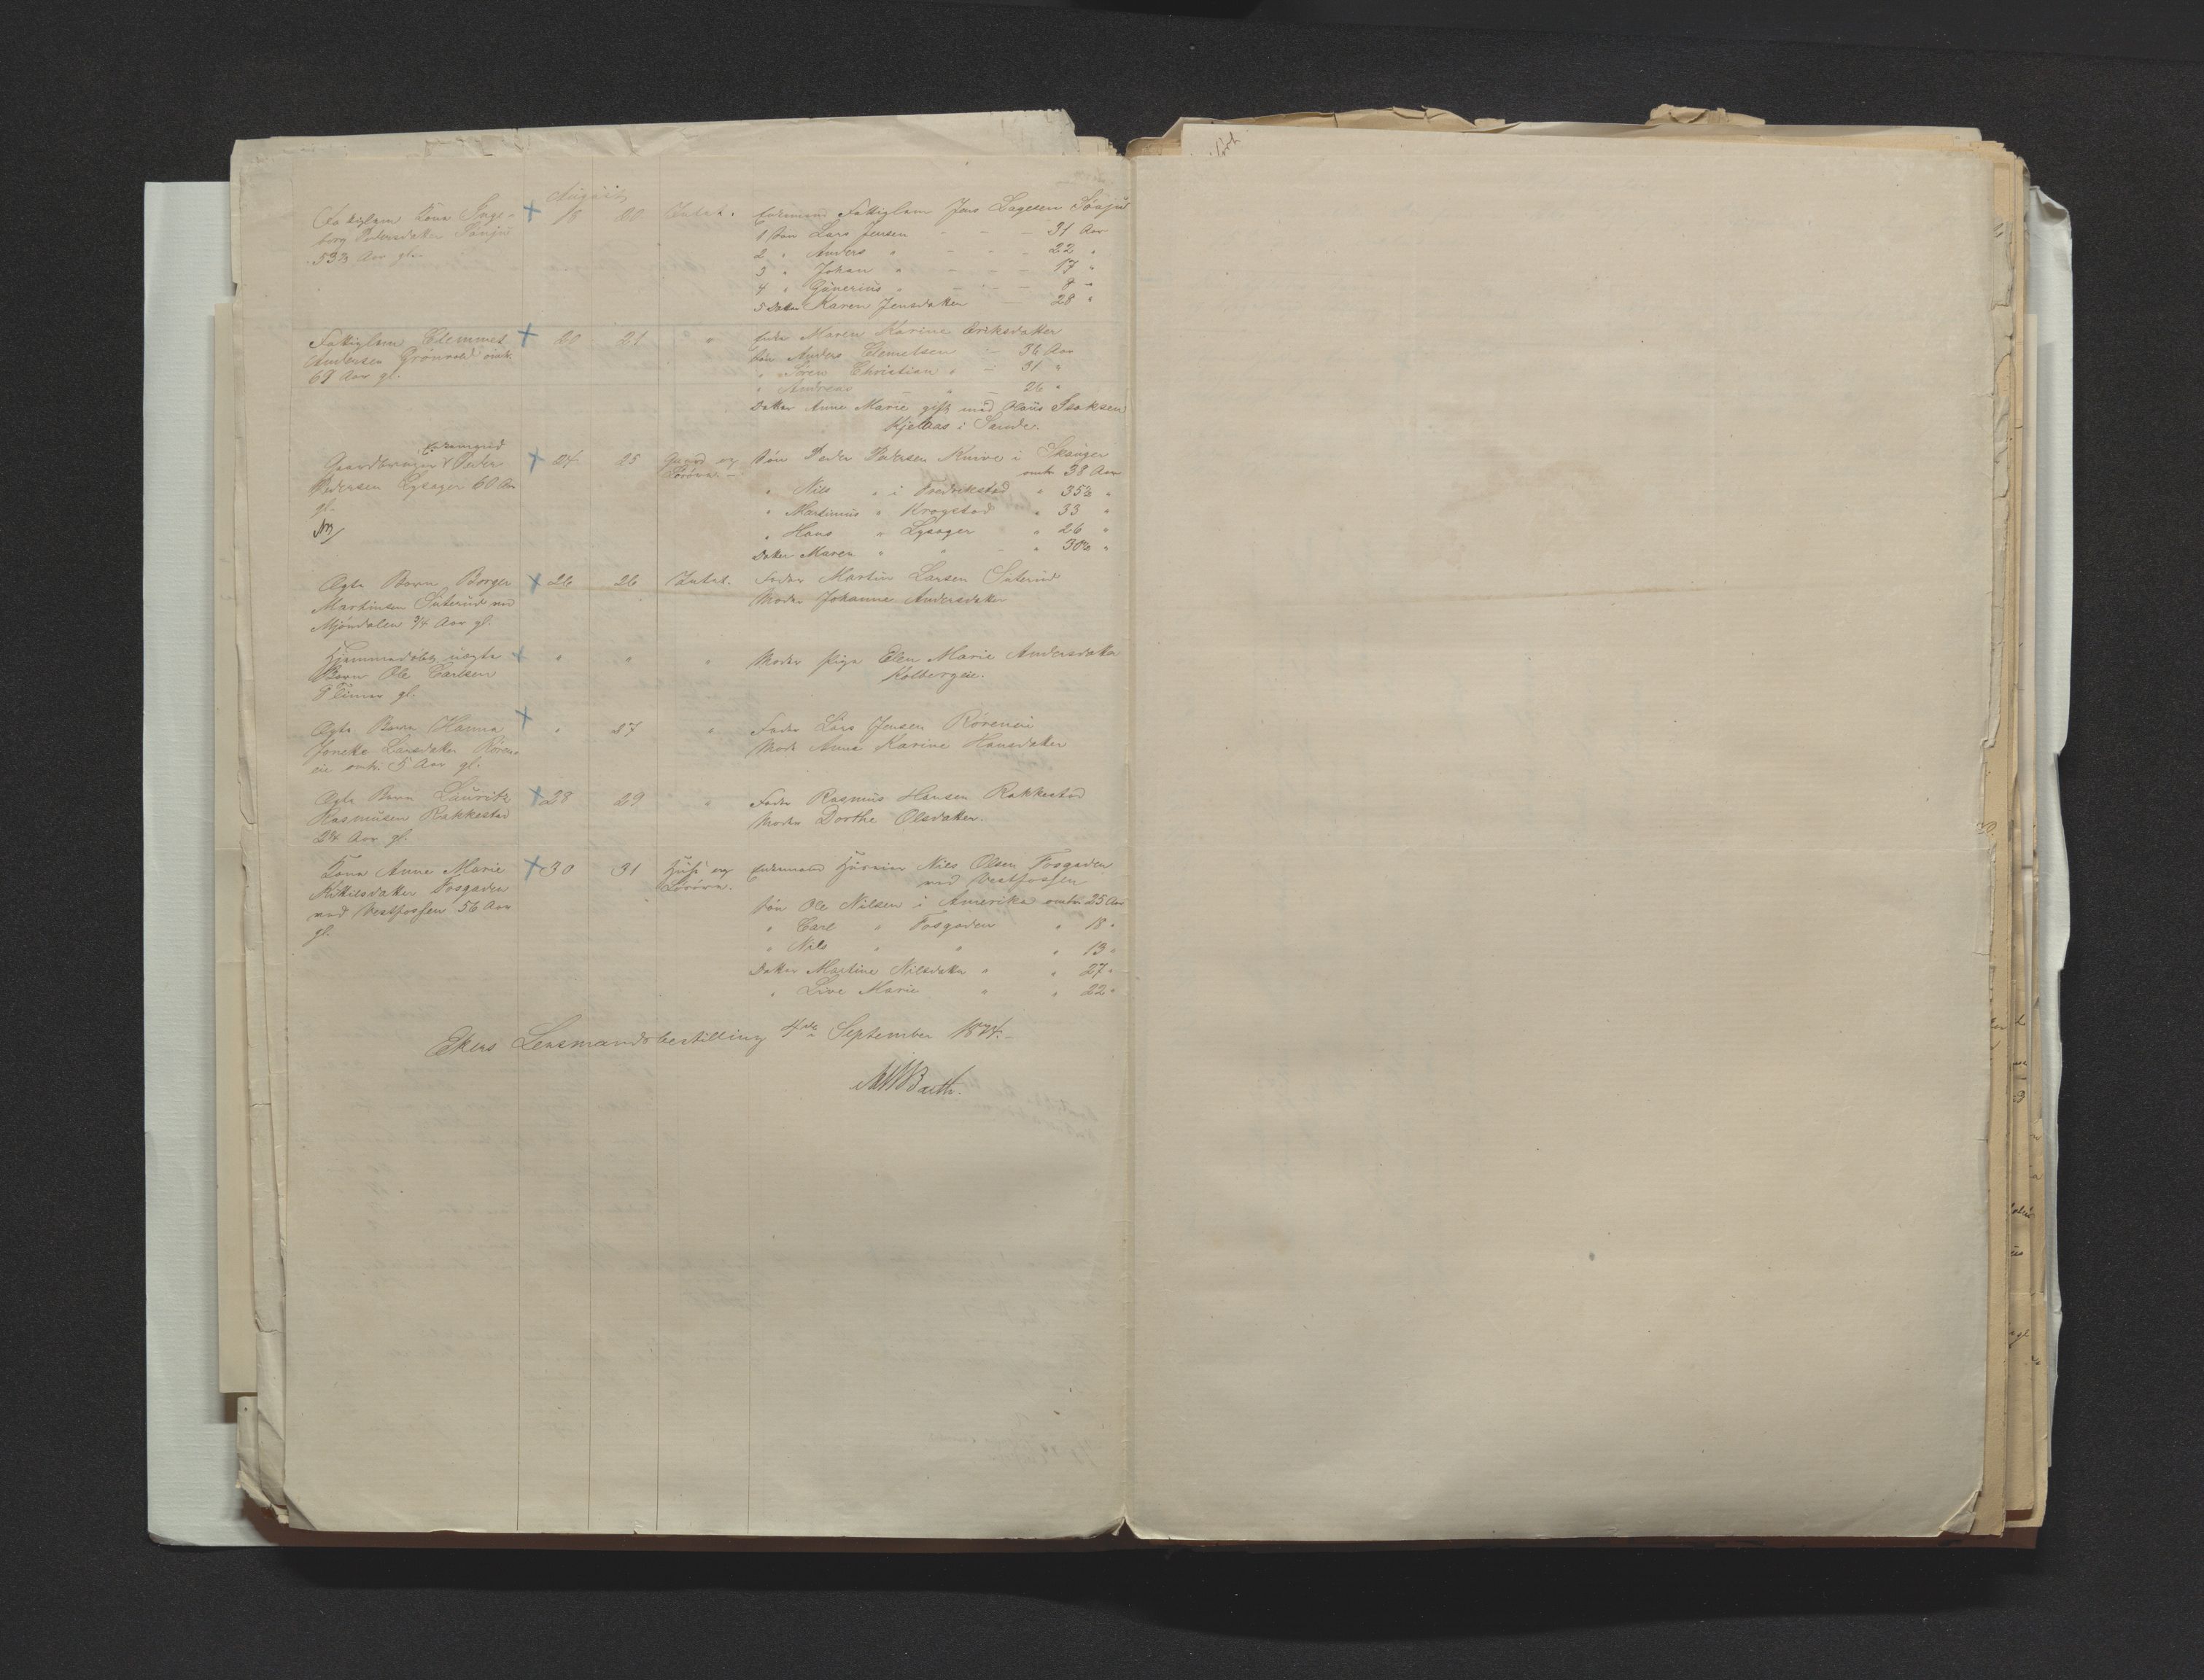 August
Fattiglem Kone Inge- 18 20 Intet. Enkemand Fattiglem Jens Lagesen
borg Pedersdatter 1 Søn Lars Jensen - - - 31 Aar
53⅔ Aar gl. 2 " Anders " - - - 22 "
3 " Johan " - - - 17 "
4 " Gunerius " - - - 8 "
5 Datter Karen Jensdatter - 28 "
Fattiglem Clemmet 20 21 " Enke Maren Karine Eriksdatter
Andersen Grønvold omtr. Søn Anders Clemetsen - 36 Aar
69 Aar gl. " Søren Christian " - 31 "
" Andreas " - 26 "
Datter Anne Marie gift med Olaus Isaksen
Kjelaas i Sande.
Enkemand
Gaardbruger Peder 24 25 Gaard og Søn Peder Pedersen Kurve i Skouger
Pedersen Lysager 60 Aar Løsøre - omtr 38 Aar
gl. " Nils " i Fredrikstad " 35½ "
" Martinius " Krogstad " 33 "
" Hans " Lysager " 26 "
Datter Maren " " - " 30½ "
Ægte Barn Borger 26 26 Intet. Fader Martin Larsen Suterud
Martinsen Suterud ved Moder Johanne Andersdatter
Mjøndalen ¾ Aar gl.
Hjemmedøbt uægte " " " Moder Pige Elen Marie Andersdatter
Barn Ole Carlsen Kolbergeie.
9 Timer gl.
Ægte Barn Hanna " 27 " Fader Lars Jensen Røreneie
Larsdatter Røren- Moder Anne Karine Hansdatter
eie omtr. 5 Aar gl.
Ægte Barn Lauritz 28 29 " Fader Rasmus Hansen Rakkestad
Rasmusen Rakkestad Moder Dorthe Olsdatter.
2¼ Aar gl.
Kone Anne Marie 30 31 Huse og Enkemand Husmand Nils Olsen Fosgaden
Fosgaden Løsøre. ved Vestfossen
ved Vestfossen 56 Aar Søn Ole Nilsen i Amerika omtr 25 Aar
gl. " Carl " Fosgaden " 18 "
" Nils " " " 13 "
Datter Martine Nilsdatter " " 27 "
" Live Marie " " 22 "
Ekers Lensmandsbestilling 4de September 1874.
Barth.